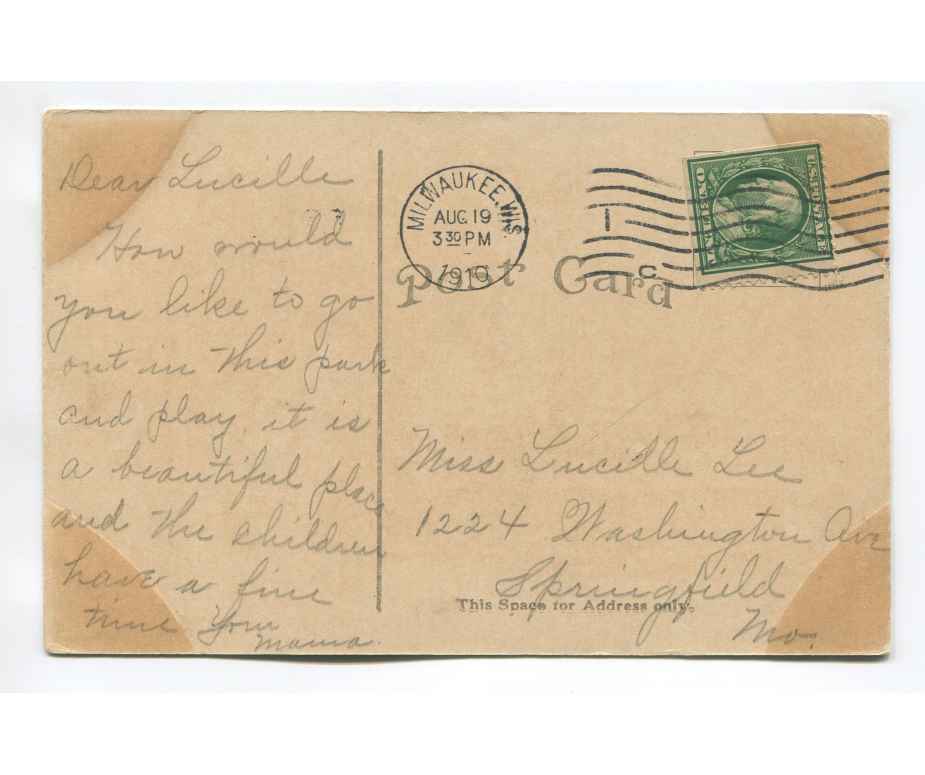 Dear Lucille
How would
you like to go
out in this park
and play, it is
a beautiful place
and the children
have a fine
time Your
Mama.
MILWAUKEE, WIS.
AUG 19
3 30 PM
1910
1
C
Post Card
U.S. POSTAGE
Miss Lucille Lee
1224 Washington Ave
Springfield
This Space for Address only.
Mo.